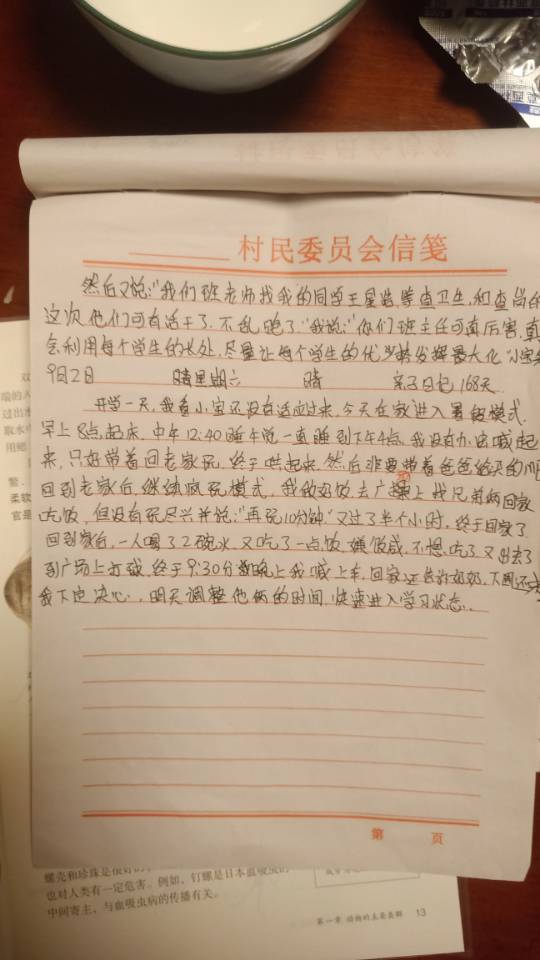 村民委员会信笺
然后又说:"我们班老师找我的同学王星浩等查卫生,和查岗的
这次他们可有活干了,不乱跑了."我说:"你们班主任可真厉害,真
会利用每个学生的长处,尽量让每个学生的优势发挥最大化.
9月2日 晴 星期六 晴 亲子日记168天
开学一天,我看小宝还没有适应过来,今天在家进入暑假模式.
早上8点起床,中午12:40睡午觉一直睡到下午4点,我没有办法喊起
来,只好带着回老家玩,终于哄起来,然后非要带着爸爸给买的
回到老家后,继续疯玩模式,我做好饭去广场上找兄弟俩回家
吃饭,但没有玩尽兴并说:"再玩10分钟"又过了半个小时,终于回家了
回到家后,一人喝了2碗水,又吃了一点饭,嫌饭咸,不想吃了,又出去了
到广场上打球,终于9:30分
我喊上车,回家还告诉奶奶,下周还来
我下定决心,明天调整他俩的时间,快速进入学习状态.
第 页
螺壳和珍珠是很好的
也对人类有一定危害。例如,钉螺是日本血吸虫的
中间寄主,与血吸虫病的传播有关。
第一章 动物的主要类群 13